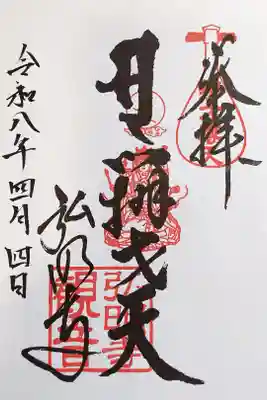 奉拝
身代り弁才天
弘明寺
令和八年四月四日
弘明寺
観音